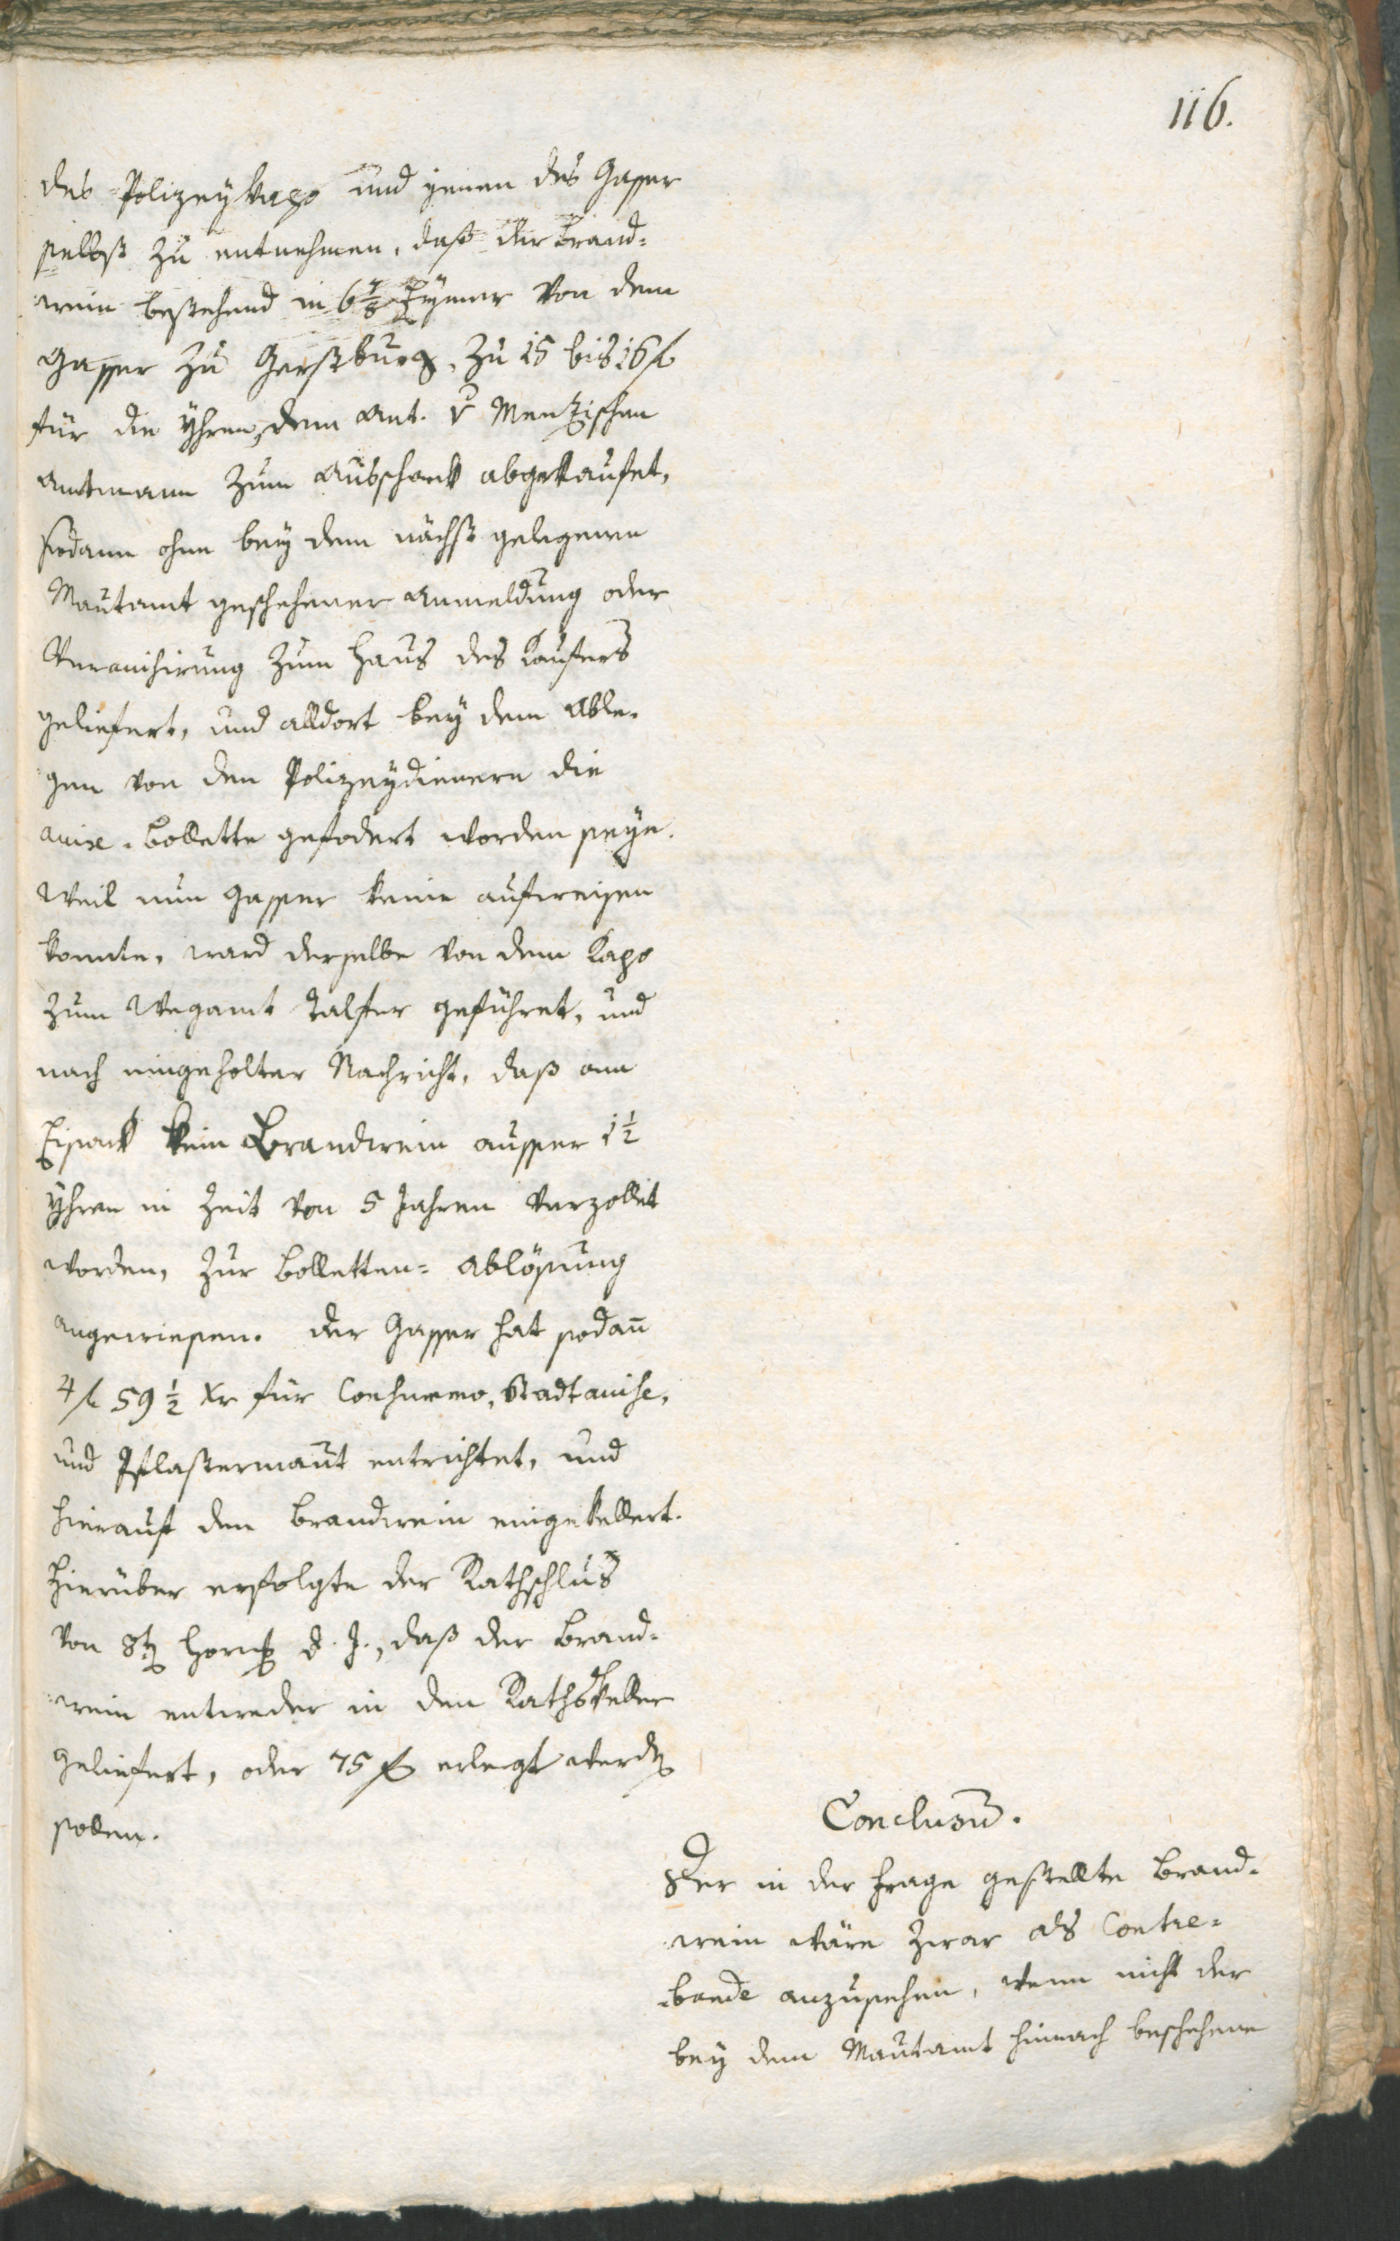 116.
des Polizeykapo und jenen des Gasser
selbst zu entnehmen, daß der Brand¬
wein bestehend in 6 7/8 Eymer von dem
Gasser zu Gerstburg, zu 15 bis 16 f
für die Yhren, dem Ant. v Menzischen
Amtmann zum Ausschank abgekaufet,
sodann ohne bey dem nächst gelegenen
Mautamt geschehener Anmeldung oder
Veraccisirung zum Haus des Kaufers
geliefert, und alldort bey dem Able¬
gen von den Polizeydienern die
accise-Bollette gefodert worden seye.
Weil nun Gasser keine aufweisen
konnte, ward derselbe von dem Kapo
zum Wegamt Talfer geführet, und
nach eingeholter Nachricht, daß am
Eisack kein Brandwein ausser 1 1/2
Yhren in Zeit von 5 Jahren verzollet
worden, zur Bolletten-Ablösung
angewiesen. Der Gasser hat sodan̅
4 f 59 1/2 xr für Consummo, Stadtaccise,
und Pflastermaut entrichtet, und
hierauf den Brandwein eingekellert.
Hierüber erfolgte der Rathschlus
von 8ten Hornung d. J., daß der Brand¬
wein entweder in den Rathskeller
geliefert, oder 75 f erlegt werden
sollen.
Conclusum̅.
Der in der Frage gestellte Brand¬
wein wäre zwar als Contre¬
bande anzusehen, wenn nicht der
bey dem Mautamt hinnach beschehene